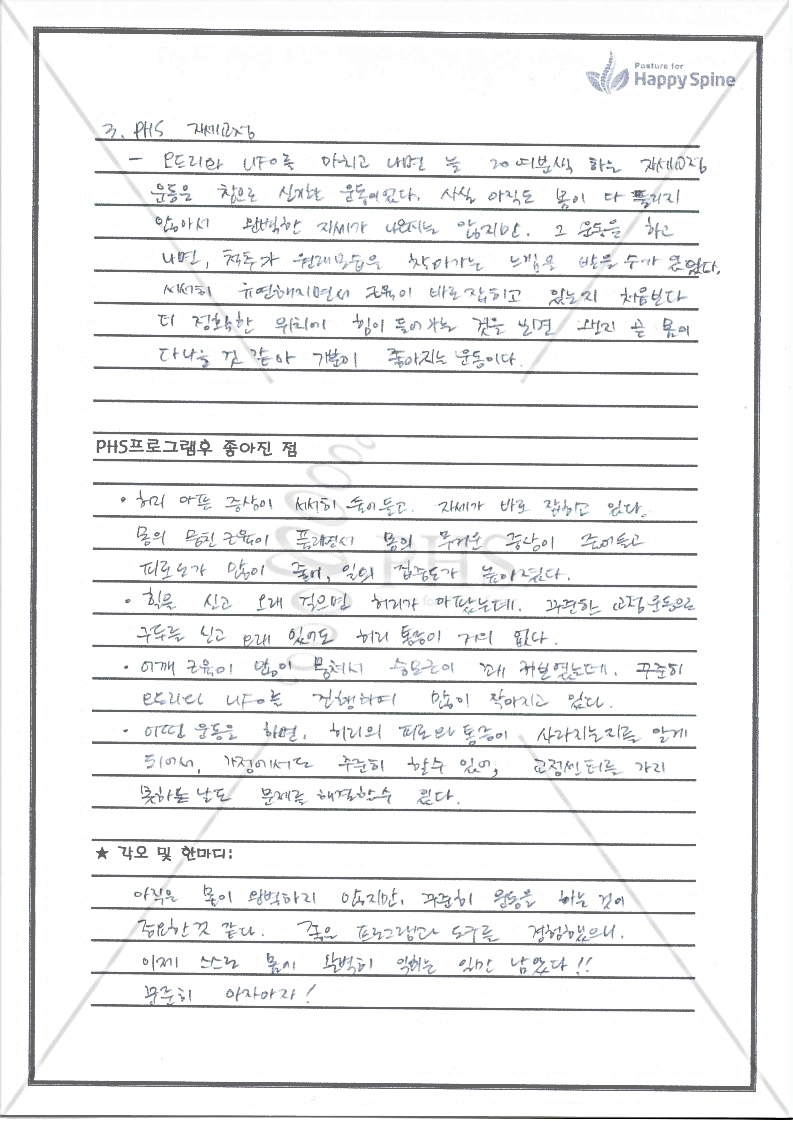 Posture for
Happy Spine
3. PHS 자세교정
- 오뜨리와 UFO를 마치고 내면 늘 20여분씩 하는 자세교정
운동은 참으로 신기한 운동이었다. 사실 아직도 몸이 다 풀리지
않아서 완벽한 자세가 나오지는 않지만, 그 운동을 하고
나면, 척추가 원래모습을 찾아가는 느낌을 받을 수가 있었다.
서서히 유연해지면서 근육이 바로 잡히고 있는지 처음보다
더 정확한 위치에 힘이 들어가는 것을 보면 왠지 곧 몸이
다나을 것 같아 기분이 좋아지는 운동이다.
PHS프로그램후 좋아진 점
• 허리 아픈 증상이 서서히 줄어들고. 자세가 바로 잡히고 있다.
몸의 뭉친 근육이 풀리면서 몸의 무거운 증상이 줄어들고
피로도가 많이 줄어, 일의 집중도가 높아졌다.
• 힐을 신고 오래 걸으면 허리가 아팠는데. 꾸준한 교정운동으로
구두를 신고 오래 있어도 허리 통증이 거의 없다.
• 어깨 근육이 많이 뭉쳐서 승모근이 꽤 커보였는데. 꾸준히
오뜨리와 UFO를 진행하여 많이 작아지고 있다.
• 어떤 운동을 하면, 허리의 피로와 통증이 사라지는지를 알게
되어서, 가정에서도 꾸준히 할수 있어, 교정센터를 가지
못하는 날도 문제를 해결할수 있다.
★ 각오 및 한마디:
아직은 몸이 완벽하지 않지만, 꾸준히 운동을 하는 것이
중요한것 같다. 좋은 프로그램과 도구를 경험했으니.
이제 스스로 몸에 완벽히 익히는 일만 남았다!!
꾸준히 아자아자!
PHS